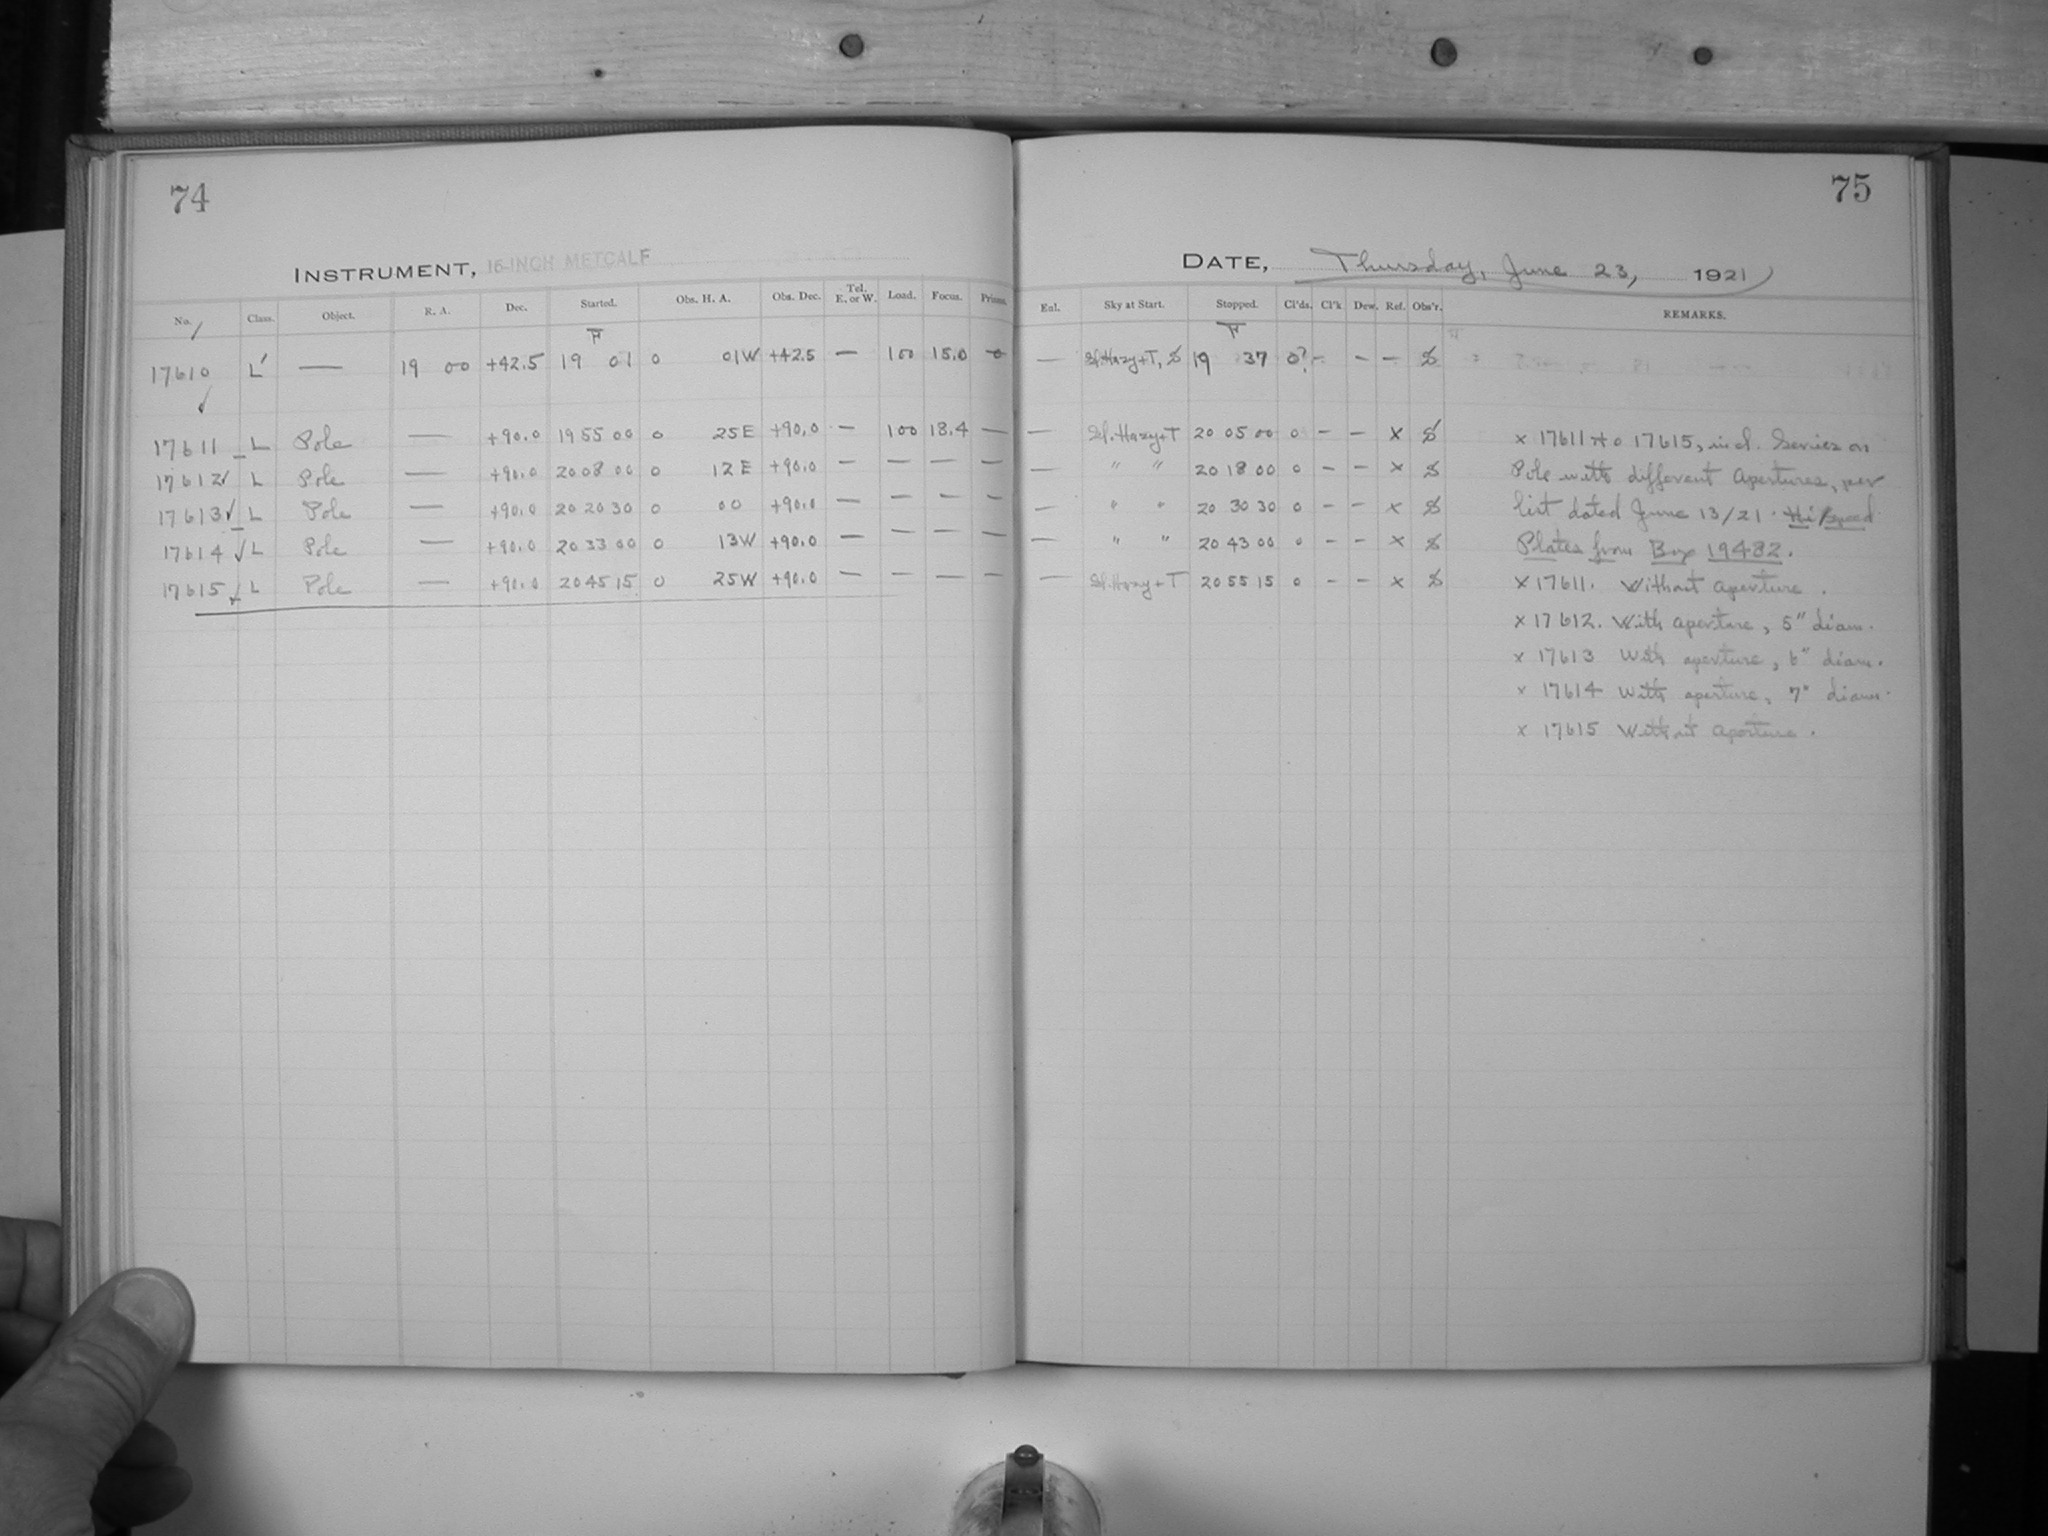 74
INSTRUMENT, 16-INCH METCALF
No. Class. Object. R. A. Dec. Started. Obs. H. A. Obs. Dec. Tel. E. or W. Load. Focus. Prisms.
17610 L' — 19 00 +42.5 19 01 0 01W +42.5 — 100 15.0
17611 L Pole — +90.0 19 55 00 0 25E +90.0 — 100 18.4 —
17612 L Pole — +90.0 20 08 00 0 12E +90.0 — — — —
17613 L Pole — +90.0 20 20 30 0 00 +90.0 — — — —
17614 L Pole — +90.0 20 33 00 0 13W +90.0 — — — —
17615 L Pole — +90.0 20 45 15 0 25W +90.0 — — — —
75
DATE, Thursday, June 23, 1921
Enl. Sky at Start. Stopped. Cl'ds. Cl'k Dew. Ref. Obs'r. REMARKS.
— Sl. Hazy+T, S 19 37 0? – – – S
— Sl. Hazy+T 20 05 00 0 – – x S x 17611 to 17615, incl. Series on
— " " 20 18 00 0 – – x S Pole with different apertures, per
— " " 20 30 30 0 – – x S list dated June 13/21. Hi/speed
— " " 20 43 00 0 – – x S Plates from Box 19482.
— Sl. Hazy+T 20 55 15 0 – – x S x 17611. Without aperture.
x 17612. With aperture, 5" diam.
x 17613 With aperture, 6" diam.
x 17614 With aperture, 7" diam.
x 17615 Without aperture.